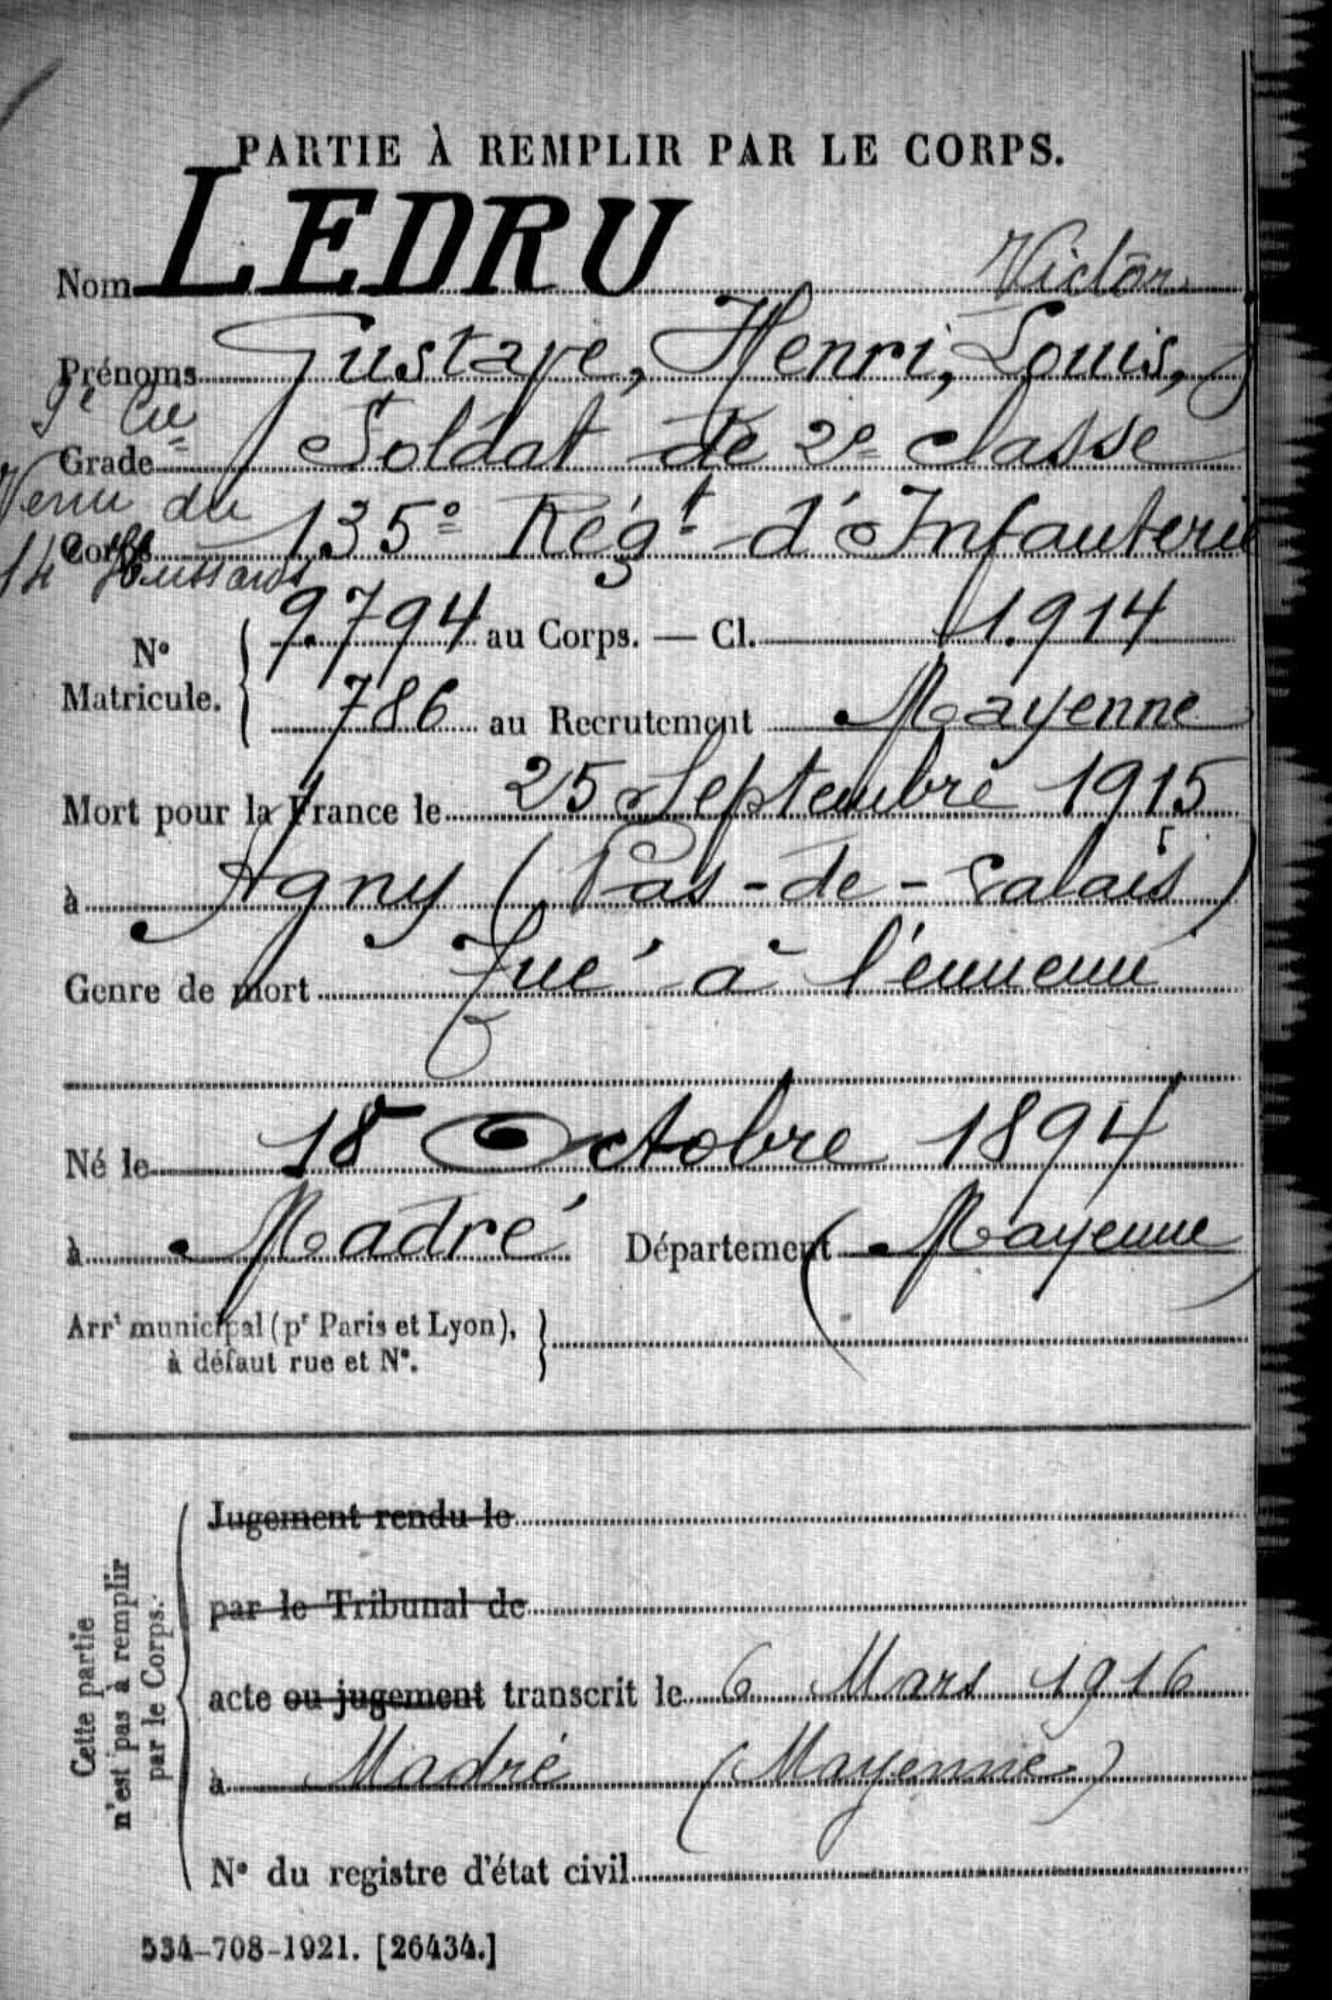 PARTIE À REMPLIR PAR LE CORPS.
Nom LEDRU
Victor
Prénoms Gustave, Henri, Louis,
9e Cie
Grade Soldat de 2e classe
Venu du
Corps 135e Régt d'Infanterie
14e Hussards
No Matricule. { 9.794 au Corps. — Cl. 1.914
786 au Recrutement Mayenne
Mort pour la France le 25 Septembre 1915
à Agny (Pas-de-Calais)
Genre de mort Tué à l'ennemi
Né le 18 Octobre 1894
à Madré Département (Mayenne)
Arrt municipal (pr Paris et Lyon), }
à défaut rue et No.
Cette partie
n'est pas à remplir
par le Corps.
Jugement rendu le
par le Tribunal de
acte ou jugement transcrit le 6 Mars 1916
à Madré (Mayenne)
No du registre d'état civil
534-708-1921. [26434.]